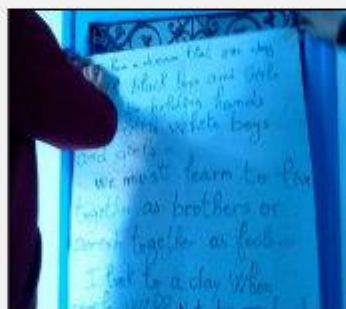 have a dream that one day
black boys and Girls
holding hands
with white boys
and girls
We must learn to live
together as brothers or
perish together as fools
I look to a day when